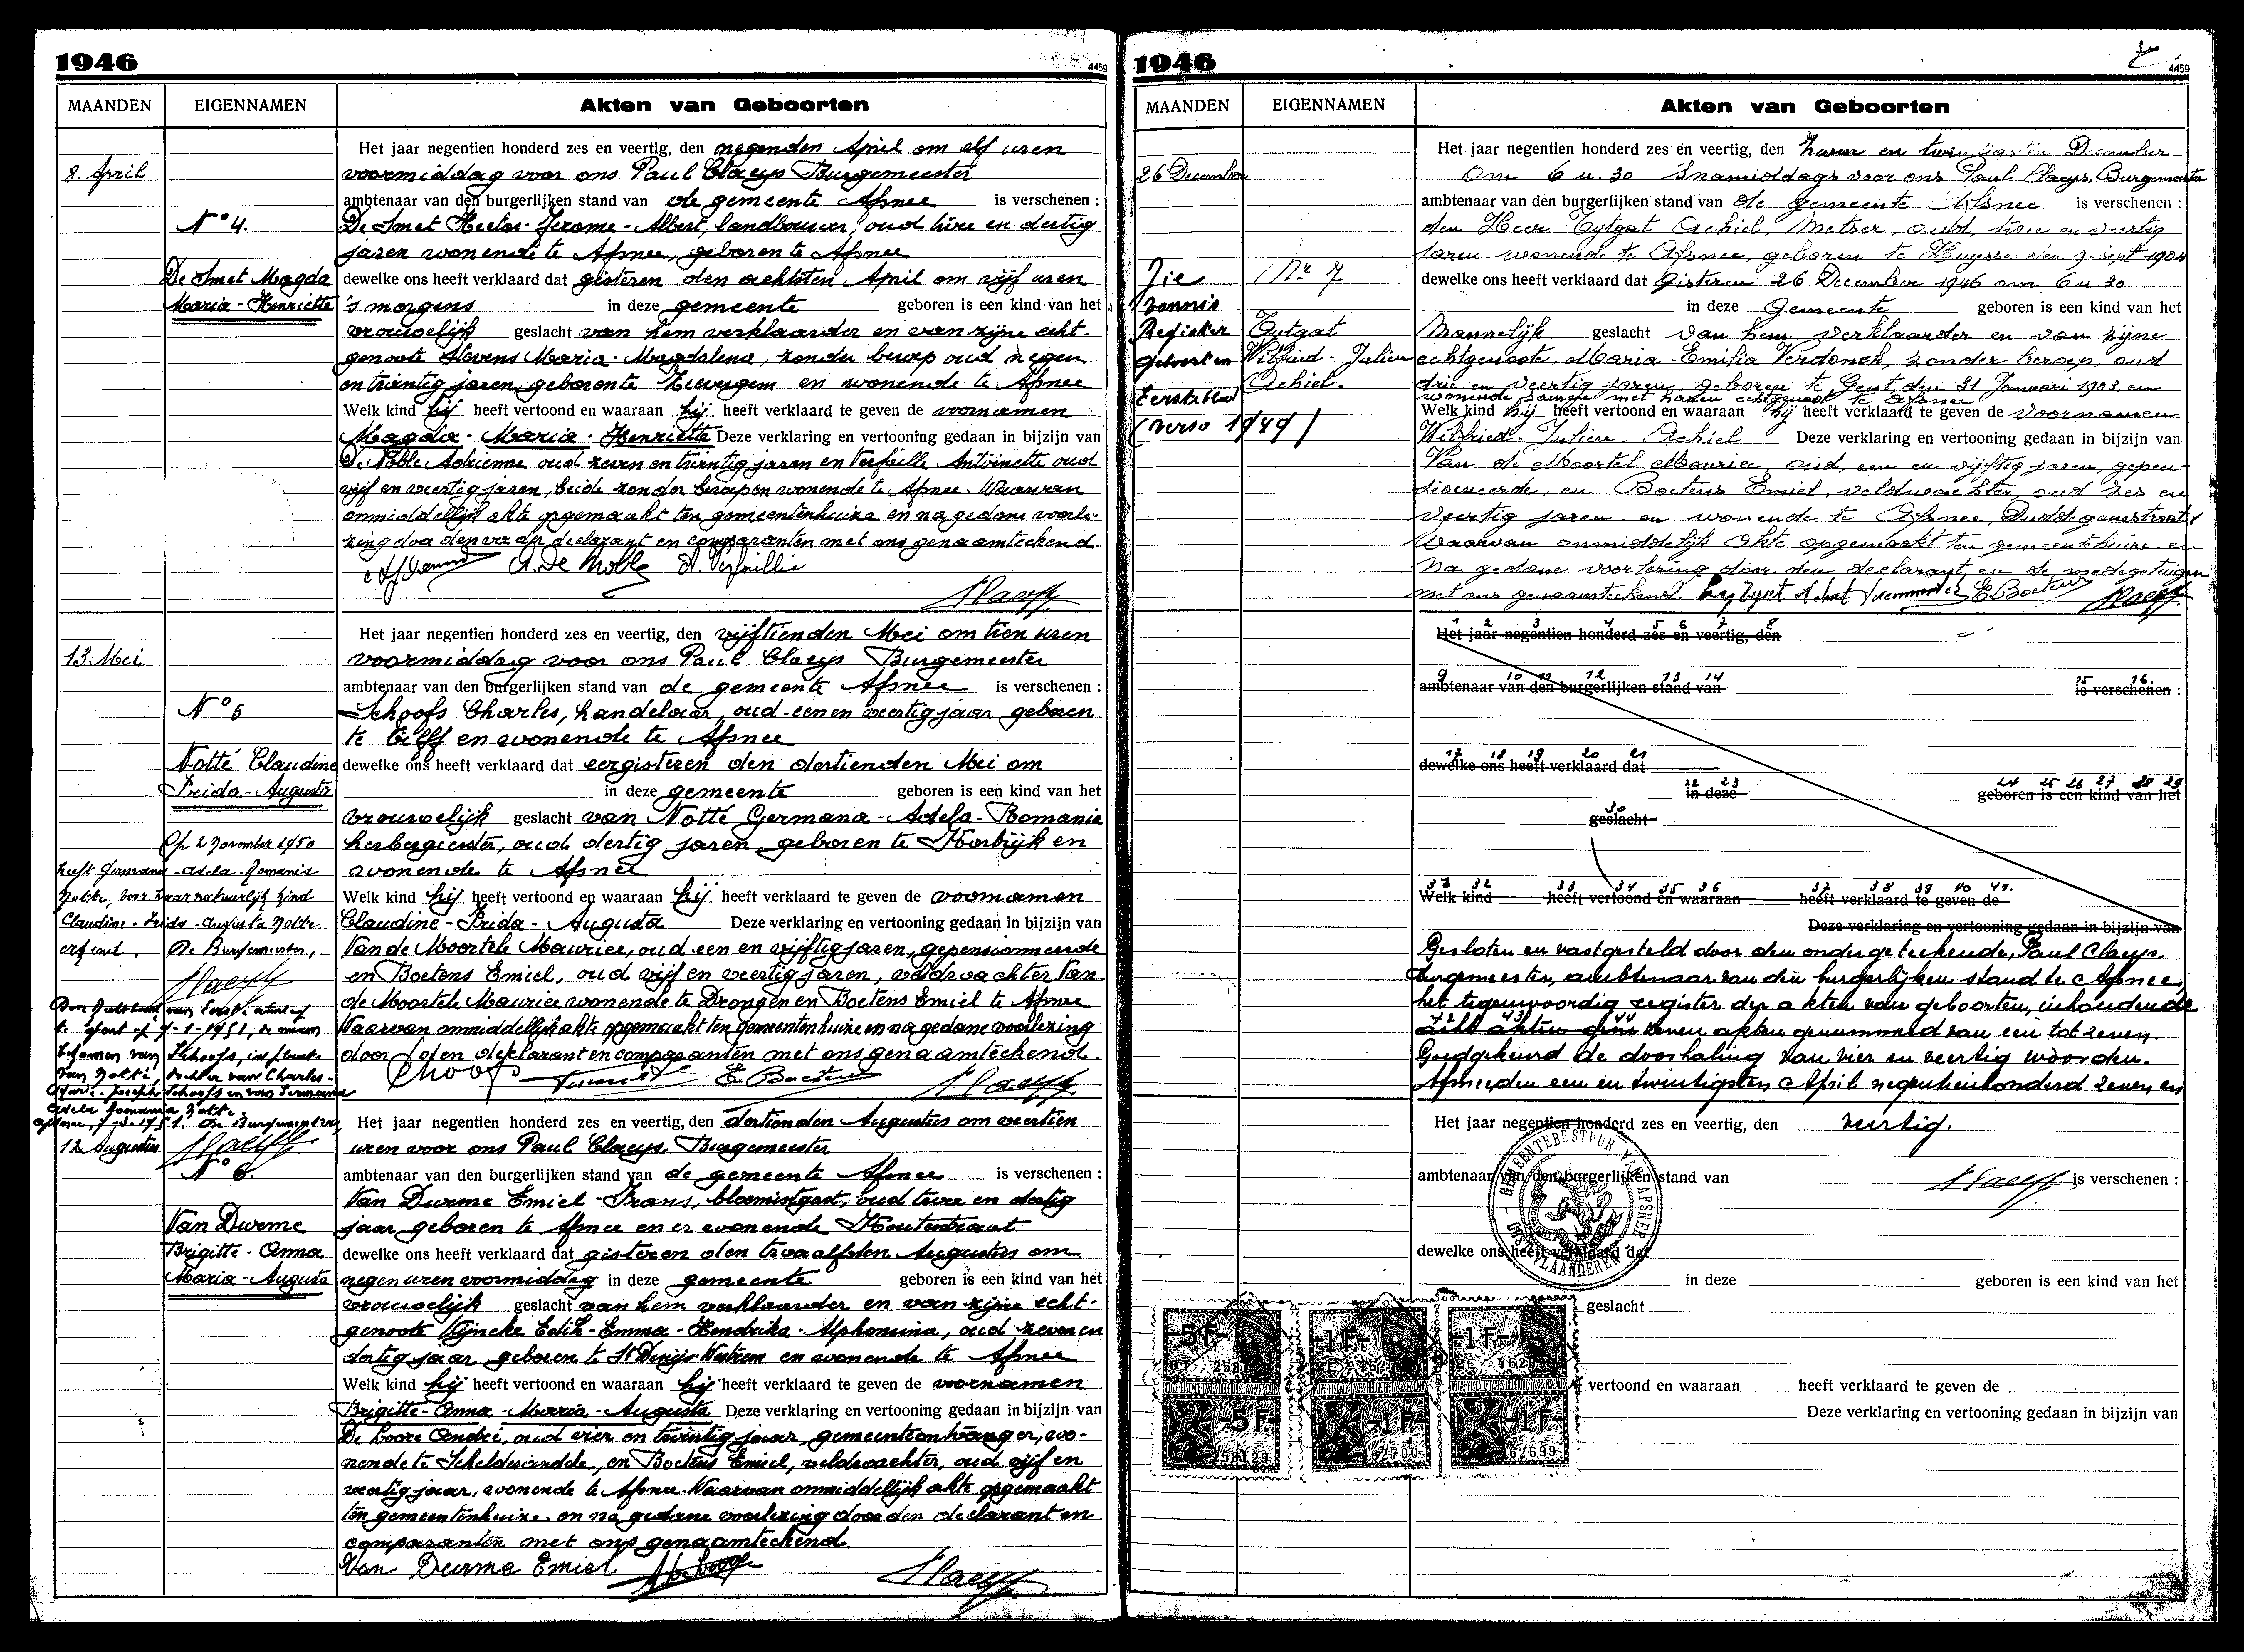 1946
4459
MAANDEN EIGENNAMEN Akten van Geboorten
Het jaar negentien honderd zes en veertig, den negenden April om elf uren
8 April voormiddag voor ons Paul Claeys Burgemeester
ambtenaar van den burgerlijken stand van de gemeente Afsnee is verschenen :
N° 4. De Smet Hector-Jerome-Albert, landbouwer, oud twee en dertig
jaren wonende te Afsnee, geboren te Afsnee
De Smet Magda dewelke ons heeft verklaard dat gisteren den achtsten April om vijf uren
Maria-Henriette 's morgens in deze gemeente geboren is een kind van het
vrouwelijk geslacht van hem verklaarder en van zijne echt-
genoote Stevens Maria-Magdalena, zonder beroep oud negen
en twintig jaren, geboren te Zevergem en wonende te Afsnee
Welk kind hij heeft vertoond en waaraan hij heeft verklaard te geven de voornamen
Magda-Maria-Henriette Deze verklaring en vertooning gedaan in bijzijn van
De Noble Adrienne oud zeven en twintig jaren en Verfaillie Antoinette oud
vijf en veertig jaren, beide zonder beroep en wonende te Afsnee. Waarvan
onmiddellijk akte opgemaakt ten gemeentenhuize en na gedane voorle-
zing den declarant en comparanten met ons genaamteekend
A. De Noble A. Verfaillie
Claeys
Het jaar negentien honderd zes en veertig, den vijftienden Mei om tien uren
13 Mei voormiddag voor ons Paul Claeys Burgemeester
ambtenaar van den burgerlijken stand van de gemeente Afsnee is verschenen :
N° 5 Schoofs Charles, handelaar, oud een en veertig jaar geboren
te Tilff en wonende te Afsnee
Notté Claudine dewelke ons heeft verklaard dat eergisteren den dertienden Mei om
Frida-Augusta in deze gemeente geboren is een kind van het
vrouwelijk geslacht van Notté Germana-Adela-Romania
Op 2 November 1950 herbergierster, oud dertig jaren, geboren te Kortrijk en
heeft Germana-Adela-Romania wonende te Afsnee
Notte, voor haar natuurlijk kind Welk kind hij heeft vertoond en waaraan hij heeft verklaard te geven de voornamen
Claudine-Frida-Augusta Notte Claudine-Frida-Augusta Deze verklaring en vertooning gedaan in bijzijn van
erkend. De Burgemeester, Van de Moortele Maurice, oud een en vijftig jaren, gepensionneerde
Claeys en Boetens Emiel, oud vijf en veertig jaren, veldwachter Van
de Moortele Maurice wonende te Drongen en Boetens Emiel te Afsnee
Waarvan onmiddellijk akte opgemaakt ten gemeentenhuize en na gedane voorlezing
door den deklarant en comparanten met ons genaamteekend.
van Schoofs, in plaats
van Notté, dochter van Charles-
Joseph Schoofs en van Germana
Adela Romania Notte.
De Burgemeester,
Claeys
Schoofs E. Boetens Claeys
Het jaar negentien honderd zes en veertig, den dertienden Augustus om veertien
12 Augustus uren voor ons Paul Claeys. Burgemeester
N° 6. ambtenaar van den burgerlijken stand van de gemeente Afsnee is verschenen :
Van Durme Emiel-Frans, bloemist, oud twee en dertig
Van Durme jaar geboren te Afsnee en er wonende Houtenstraat
Brigitte-Anna dewelke ons heeft verklaard dat gisteren den twaalfden Augustus om
Maria-Augusta negen uren voormiddag in deze gemeente geboren is een kind van het
vrouwelijk geslacht van hem verklaarder en van zijne echt-
genoote Edith-Emma-Hendrika-Alphonsina, oud zeven en
dertig jaar geboren te St Denijs-Westrem en wonende te Afsnee
Welk kind hij heeft vertoond en waaraan hij heeft verklaard te geven de voornamen
Brigitte-Anna-Maria-Augusta Deze verklaring en vertooning gedaan in bijzijn van
De Loore André, oud vier en twintig jaar, gemeentontvanger, wo-
nende te Schelderwindeke, en Boetens Emiel, veldwachter, oud vijf en
veertig jaar, wonende te Afsnee. Waarvan onmiddellijk akte opgemaakt
ten gemeentenhuize en na gedane voorlezing door den declarant en
comparanten met ons genaamteekend.
Van Durme Emiel Claeys
1946
4459
MAANDEN EIGENNAMEN Akten van Geboorten
Het jaar negentien honderd zes en veertig, den zeven en twintigsten December
26 December Om 6 u. 30 's namiddags voor ons Paul Claeys, Burgemeester
ambtenaar van den burgerlijken stand van de gemeente Afsnee is verschenen :
den Heer Eytgat Achiel, Metser, oud, twee en veertig
jaren wonende te Afsnee, geboren te Huysse den 9 sept 1904
Zie Nr 7 dewelke ons heeft verklaard dat Gisteren 26 December 1946 om 6 u. 30
vonnis in deze Gemeente geboren is een kind van het
Register Eytgat Mannelijk geslacht van hem verklaarder en van zijne
geboorten Wilfried-Julien echtgenoote, Maria-Emilia Verdonck, zonder beroep, oud
Achiel. drie en veertig jaren, geboren te Gent, den 31 Januari 1903, en
Eerste blad wonende samen met haren echtgenoot te Afsnee
Welk kind hij heeft vertoond en waaraan hij heeft verklaard te geven de Voornamen
(verso 1949) Wilfried-Julien-Achiel Deze verklaring en vertooning gedaan in bijzijn van
Van de Moortel Maurice, oud, een en vijftig jaren, gepen-
sioneerde, en Boetens Emiel, veldwachter, oud zes en
veertig jaren, en wonende te Afsnee,
Waarvan onmiddelijk Akte opgemaakt ten gemeentehuize en
Na gedane voorlezing door den declarant, en de medegetuigen
met ons genaamteekend. Eytgat Achiel E. Boetens Claeys
1 2 3 4 5 6 7 8
Het jaar negentien honderd zes en veertig, den
9 10 11 12 13 14 15 16.
ambtenaar van den burgerlijken stand van is verschenen :
17 18 19 20 21
dewelke ons heeft verklaard dat
22 23 24 25 26 27 28 29
in deze geboren is een kind van het
30
geslacht
31 32 33 34 35 36 37 38 39 40 41.
Welk kind heeft vertoond en waaraan heeft verklaard te geven de
Deze verklaring en vertooning gedaan in bijzijn van
Gesloten en vastgesteld door den ondergeteekende, Paul Claeys,
burgemeester, ambtenaar van den burgerlijken stand te Afsnee,
het tegenwoordig register der akten van geboorten, inhoudende
42 43 44
acht akten zeven akten genummerd van een tot zeven.
Goedgekeurd de doorhaling van vier en veertig woorden.
Afsnee den een en twintigsten April negentienhonderd zeven en
Het jaar negentien honderd zes en veertig, den veertig.
GEMEENTEBESTUUR VAN AFSNEE
OOST-VLAANDEREN
ambtenaar van den burgerlijken stand van Claeys is verschenen :
dewelke ons heeft verklaard dat
in deze geboren is een kind van het
geslacht
-5F- -1F- -1F-
vertoond en waaraan heeft verklaard te geven de
Deze verklaring en vertooning gedaan in bijzijn van
-5F- -1F- -1F-
258129